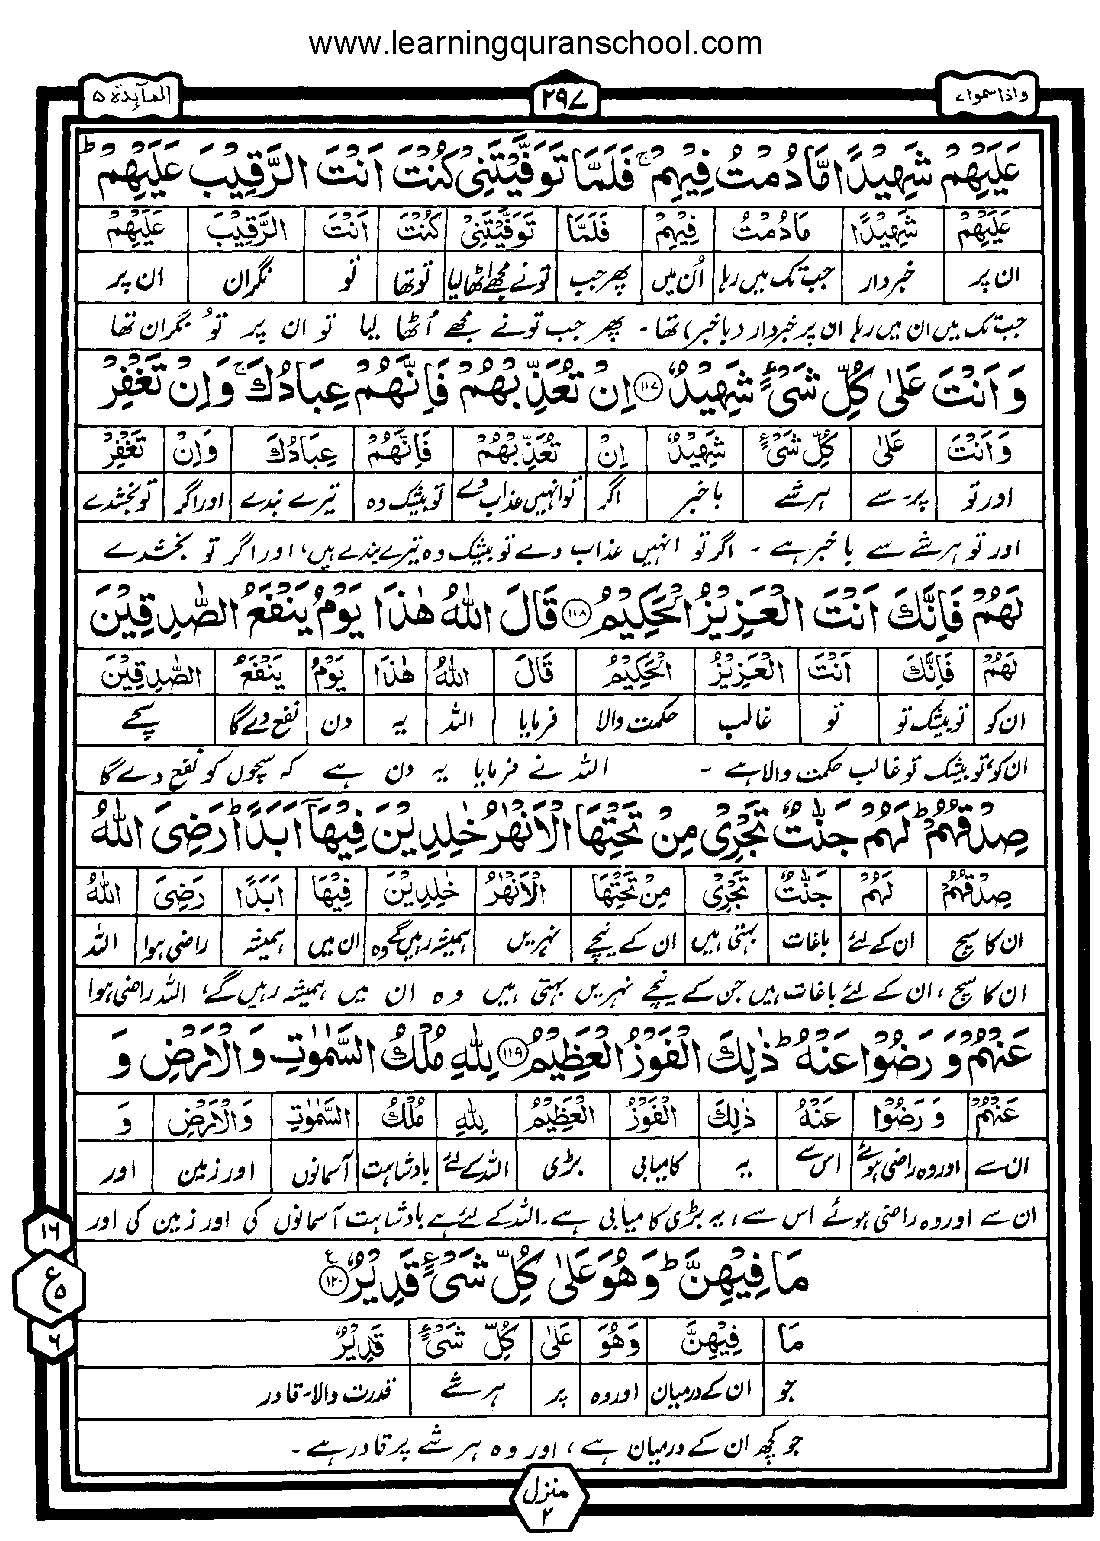 www.learningquranschool.com
واذاسمعوا ۷
۲۹۷
المآئدة ۵
عَلَيْهِمْ شَهِيْدًا مَّا دُمْتُ فِيْهِمْ ۚ فَلَمَّا تَوَفَّيْتَنِيْ كُنْتَ اَنْتَ الرَّقِيْبَ عَلَيْهِمْ ؕ
عَلَيْهِمْ شَهِيْدًا مَا دُمْتُ فِيْهِمْ فَلَمَّا تَوَفَّيْتَنِيْ كُنْتَ اَنْتَ الرَّقِيْبَ عَلَيْهِمْ
ان پر خبردار جب تک میں رہا اُن میں پھر جب تونے مجھے اٹھالیا توتھا تو نگران ان پر
جب تک میں ان میں رہا ان پر خبردار (باخبر) تھا ۔ پھر جب تونے مجھے اُٹھا لیا تو ان پر تو نگران تھا
وَ اَنْتَ عَلٰى كُلِّ شَيْءٍ شَهِيْدٌ ۝۱۱۷ اِنْ تُعَذِّبْهُمْ فَاِنَّهُمْ عِبَادُكَ ۚ وَ اِنْ تَغْفِرْ
وَ اَنْتَ عَلٰى كُلِّ شَيْءٍ شَهِيْدٌ اِنْ تُعَذِّبْهُمْ فَاِنَّهُمْ عِبَادُكَ وَاِنْ تَغْفِرْ
اور تو پر۔سے ہر شے باخبر اگر توانہیں عذاب دے تو بیشک وہ تیرے بندے اوراگر تو بخشدے
اور تو ہر شے سے باخبر ہے ۔ اگر تو انہیں عذاب دے تو بیشک وہ تیرے بندے ہیں، اور اگر تو بخشدے
لَهُمْ فَاِنَّكَ اَنْتَ الْعَزِيْزُ الْحَكِيْمُ ۝۱۱۸ قَالَ اللّٰهُ هٰذَا يَوْمُ يَنْفَعُ الصّٰدِقِيْنَ
لَهُمْ فَاِنَّكَ اَنْتَ الْعَزِيْزُ الْحَكِيْمُ قَالَ اللّٰهُ هٰذَا يَوْمُ يَنْفَعُ الصّٰدِقِيْنَ
ان کو تو بیشک تو تو غالب حکمت والا فرمایا اللہ یہ دن نفع دے گا سچے
ان کو تو بیشک تو غالب حکمت والا ہے ۔ اللہ نے فرمایا یہ دن ہے کہ سچوں کو نفع دے گا
صِدْقُهُمْ ؕ لَهُمْ جَنّٰتٌ تَجْرِيْ مِنْ تَحْتِهَا الْاَنْهٰرُ خٰلِدِيْنَ فِيْهَاۤ اَبَدًا ؕ رَضِيَ اللّٰهُ
صِدْقُهُمْ لَهُمْ جَنّٰتٌ تَجْرِيْ مِنْ تَحْتِهَا الْاَنْهٰرُ خٰلِدِيْنَ فِيْهَا اَبَدًا رَضِيَ اللّٰهُ
ان کا سچ ان کے لئے باغات بہتی ہیں ان کے نیچے نہریں ہمیشہ رہیں گے وہ ان میں ہمیشہ راضی ہوا اللہ
ان کا سچ ، ان کے لئے باغات ہیں جن کے نیچے نہریں بہتی ہیں وہ ان میں ہمیشہ رہیں گے، اللہ راضی ہوا
عَنْهُمْ وَ رَضُوْا عَنْهُ ؕ ذٰلِكَ الْفَوْزُ الْعَظِيْمُ ۝۱۱۹ لِلّٰهِ مُلْكُ السَّمٰوٰتِ وَ الْاَرْضِ وَ
عَنْهُمْ وَ رَضُوْا عَنْهُ ذٰلِكَ الْفَوْزُ الْعَظِيْمُ لِلّٰهِ مُلْكُ السَّمٰوٰتِ وَ الْاَرْضِ وَ
ان سے اور وہ راضی ہوئے اس سے یہ کامیابی بڑی اللہ کے لئے بادشاہت آسمانوں اور زمین اور
ان سے اور وہ راضی ہوئے اس سے، یہ بڑی کامیابی ہے۔ اللہ کے لئے ہے بادشاہت آسمانوں کی اور زمین کی اور
۱۶
ع
۵
۶
مَا فِيْهِنَّ ؕ وَهُوَ عَلٰى كُلِّ شَيْءٍ قَدِيْرٌ ۝۱۲۰
مَا فِيْهِنَّ وَهُوَ عَلٰى كُلِّ شَيْءٍ قَدِيْرٌ
جو ان کے درمیان اور وہ پر ہر شے قدرت والا۔قادر
جو کچھ ان کے درمیان ہے ، اور وہ ہر شے پر قادر ہے ۔
منزل ۲